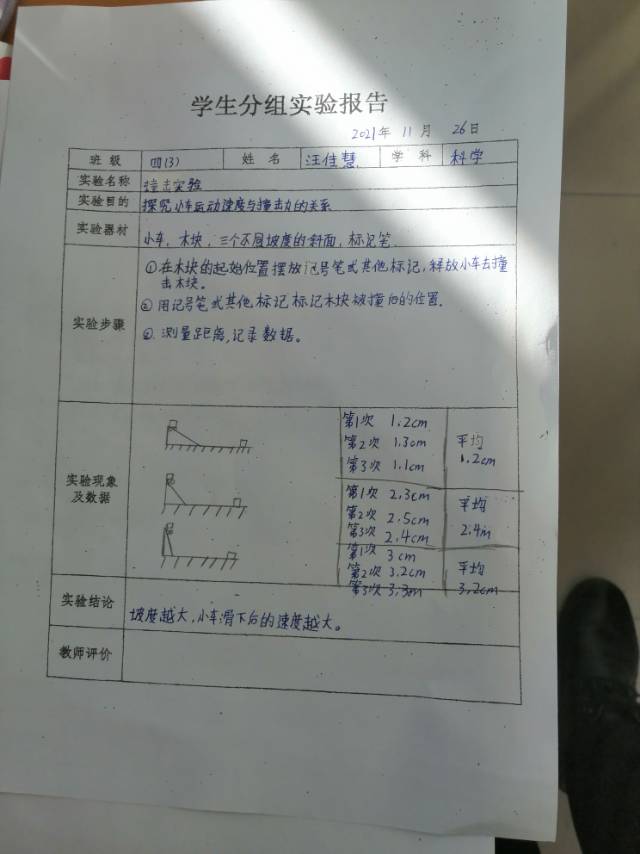 学生分组实验报告
2021年 11月 26日
班级 四(3) 姓名 汪佳慧 学科 科学
实验名称 撞击实验
实验目的 探究小车运动速度与撞击力的关系
实验器材 小车，木块，三个不同坡度的斜面，标记笔
实验步骤
①在木块的起始位置摆放记号笔或其他标记，释放小车去撞
击木块。
②用记号笔或其他标记标记木块被撞后的位置.
③.测量距离,记录数据。
实验现象
及数据
第1次 1.2cm
第2次 1.3cm
第3次 1.1cm
平均
1.2cm
第1次 2.3cm
第2次 2.5cm
第3次 2.4cm
平均
2.4m
第1次 3cm
第2次 3.2cm
第3次 3.3m
平均
3.2cm
实验结论 坡度越大,小车滑下后的速度越大。
教师评价